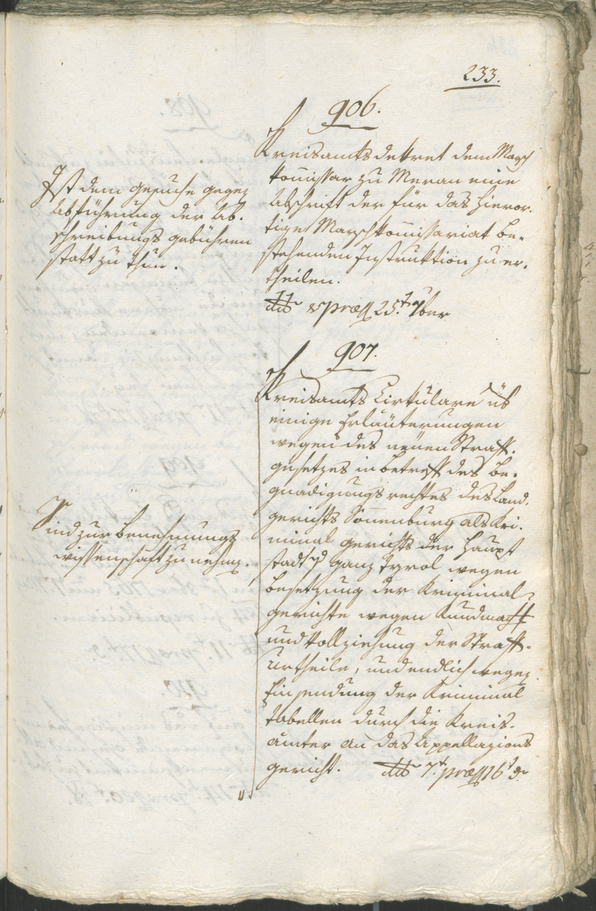 233.
906.
Kreisamtsdekret dem Marsch
kommissar zu Meran eine
Abschrift der für das hieror-
tige Marschkommissariat be-
stehenden Instruktion zu er-
theilen.
ddo praes 25t 7ber
Ist dem gesuche gegen
abführung der ab-
schreibungs gebühren
statt zu thun.
907.
Kreisamts Cirkulare üb
einige Erläuterungen
wegen des neuen Straf-
gesetzes in betreff des be-
gnadigungsrechtes des Land-
gerichts Sonnenburg als Kri-
minal gerichts der Haupt
stadt ganz tyrol wegen
besetzung der Kriminal
gerichte wegen Kundmach
und Vollziehung der Straf-
urtheile, und endlich wegen
Einsendung der Kriminal
tabellen durch die Kreis-
ämter an das Appellazions
gericht. ddo 7t praes 16t
Sind zur benehmungs
wissenschaft zu nehmen.